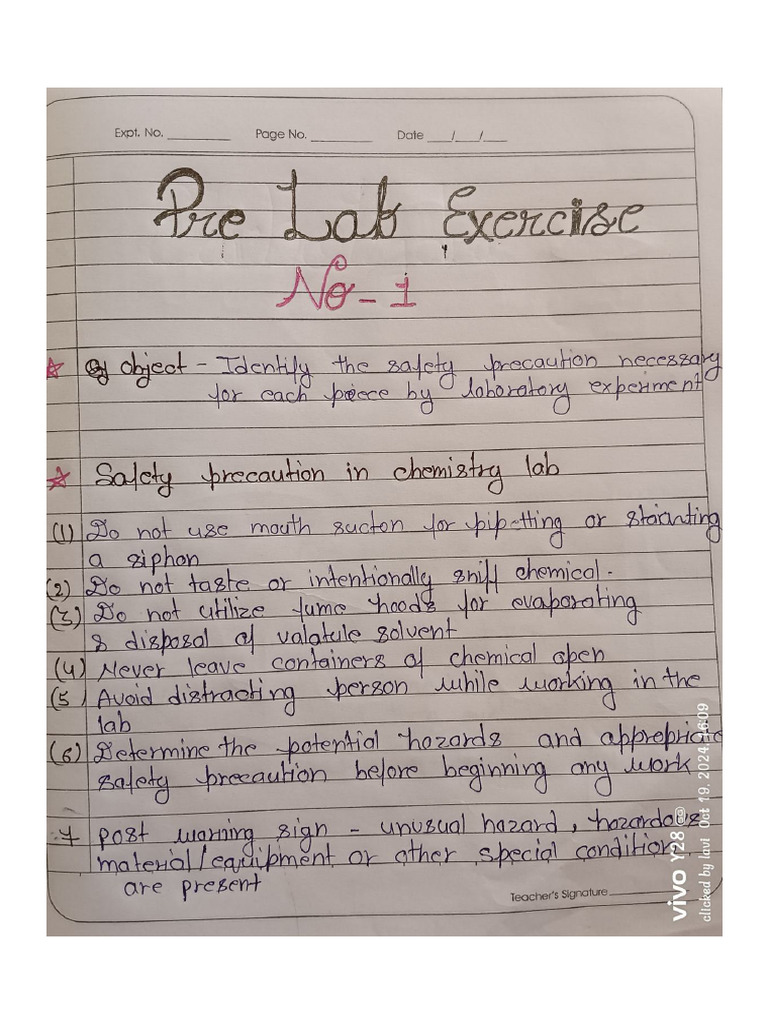 Expt. No. ________ Page No. ________ Date ___/___/___
Pre Lab Exercise
No - 1
object - Identify the safety precaution necessary
for each piece by laboratory experiment
Safety precaution in chemistry lab
(1) Do not use mouth suction for pipetting or
a siphon
(2) Do not taste or intentionally sniff chemical.
(3) Do not utilize fume hoods for evaporating
& disposal of valatule solvent
(4) Never leave containers of chemical open
(5) Avoid distracting person while working in the
lab
(6) Determine the potential hazards and appropriate
safety precaution before beginning any work
7 post warning sign - unusual hazard, hazardous
material/equipment or other special condition
are present
Teacher's Signature ________
vivo Y28
clicked by lavi Oct 19, 2024, 16:09